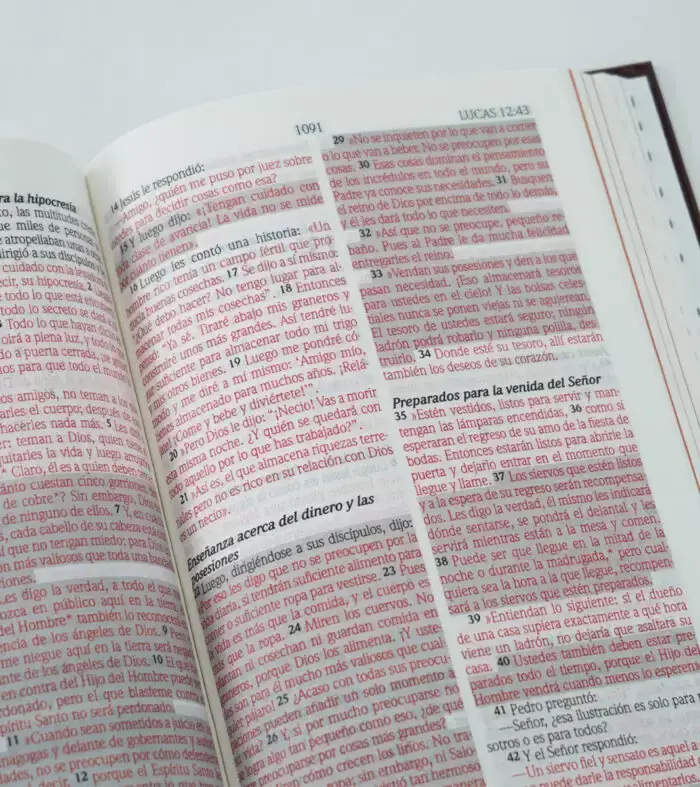 ra la hipocresía
to, las multitudes
ue miles de personas
atropellaban unas
dirigió a sus discípulos
cuidado con la
ecir, su hipocresía. 2
todo lo que está
todo lo secreto se
Todo lo que hayan
oirá a plena luz, y todo
do a puerta cerrada,
os para que todo el
os amigos, no teman a los
arles el cuerpo; después
hacerles nada más. 5 Les
er: teman a Dios, quien
quitarles la vida y luego
* Claro, él es a quien deben
cuánto cuestan cinco gorriones
de cobre*? Sin embargo, Dios
de ninguno de ellos. 7 Y, en
s, cada cabello de su cabeza
sí que no tengan miedo; para Dios
n más valiosos que toda una
riones.
Les digo la verdad, a todo el que
ozca en público aquí en la tierra,
del Hombre* también lo reconocerá
encia de los ángeles de Dios. 9 Pero
me niegue aquí en la tierra será
nte de los ángeles de Dios. 10 El que
en contra del Hijo del Hombre puede
rdonado, pero el que blasfeme contra
píritu Santo no será perdonado.
11 »Cuando sean sometidos a juicio en
nagogas y delante de gobernantes y
dades, no se preocupen por cómo defenderse
12 porque el Espíritu Santo
1091
LUCAS 12:43
14 Jesús le respondió:
—Amigo, ¿quién me puso por juez sobre
ustedes para decidir cosas como esa?
15 Y luego dijo: «¡Tengan cuidado con
toda clase de avaricia! La vida no se mide
por cuánto tienen».
16 Luego les contó una historia: «Un
hombre rico tenía un campo fértil que pro-
ducía buenas cosechas. 17 Se dijo a sí mismo:
“¿Qué debo hacer? No tengo lugar para al-
macenar todas mis cosechas”. 18 Entonces
pensó: “Ya sé. Tiraré abajo mis graneros y
construiré unos más grandes. Así tendré lu-
gar suficiente para almacenar todo mi trigo
y mis otros bienes. 19 Luego me pondré có-
modo y me diré a mí mismo: ‘Amigo mío,
tienes almacenado para muchos años. ¡Relá-
jate! ¡Come y bebe y diviértete!’”.
20 »Pero Dios le dijo: “¡Necio! Vas a morir
esta misma noche. ¿Y quién se quedará con
todo aquello por lo que has trabajado?”.
21 »Así es, el que almacena riquezas terre-
nales pero no es rico en su relación con Dios
es un necio».
Enseñanza acerca del dinero y las
posesiones
22 Luego, dirigiéndose a sus discípulos, dijo:
«Por eso les digo que no se preocupen por la
vida diaria, si tendrán suficiente alimento para
comer o suficiente ropa para vestirse. 23 Pues
la vida es más que la comida, y el cuerpo es
más que la ropa. 24 Miren los cuervos. No
plantan ni cosechan ni guardan comida en
graneros, porque Dios los alimenta. ¡Y uste-
des son para él mucho más valiosos que cual-
quier pájaro! 25 ¿Acaso con todas sus preocu-
paciones pueden añadir un solo momento a
su vida? 26 Y, si por mucho preocuparse no
se logra algo tan pequeño como eso, ¿de qué
sirve preocuparse por cosas más grandes?
Miren cómo crecen los lirios. No tra-
ropa; sin embargo, ni Salo-
vistió tan hermoso
29 »No se inquieten por lo que van a comer
o lo que van a beber. No se preocupen por esas
cosas. 30 Esas cosas dominan el pensamiento
de los incrédulos en todo el mundo, pero su
Padre ya conoce sus necesidades. 31 Busquen
el reino de Dios por encima de todo lo demás,
y él les dará todo lo que necesiten.
32 »Así que no se preocupe, pequeño re-
baño. Pues al Padre le da mucha felicidad
entregarles el reino.
33 »Vendan sus posesiones y den a los que
pasan necesidad. ¡Eso almacenará tesoros
para ustedes en el cielo! Y las bolsas celes-
tiales nunca se ponen viejas ni se agujerean.
El tesoro de ustedes estará seguro; ningún
ladrón podrá robarlo y ninguna polilla, des-
truirlo. 34 Donde esté su tesoro, allí estarán
también los deseos de su corazón.
Preparados para la venida del Señor
35 »Estén vestidos, listos para servir y man-
tengan las lámparas encendidas, 36 como si
esperaran el regreso de su amo de la fiesta de
bodas. Entonces estarán listos para abrirle la
puerta y dejarlo entrar en el momento que
llegue y llame. 37 Los siervos que estén listos
y a la espera de su regreso serán recompensa-
dos. Les digo la verdad, él mismo les indicará
dónde sentarse, se pondrá el delantal y les
servirá mientras están a la mesa y comen.
38 Puede ser que llegue en la mitad de la
noche o durante la madrugada,* pero cual-
quiera sea la hora a la que llegue, recompen-
sará a los siervos que estén preparados.
39 »Entiendan lo siguiente: si el dueño
de una casa supiera exactamente a qué hora
viene un ladrón, no dejaría que asaltara su
casa. 40 Ustedes también deben estar pre-
parados todo el tiempo, porque el Hijo del
Hombre vendrá cuando menos lo esperen».
41 Pedro preguntó:
—Señor, ¿esa ilustración es solo para
sotros o es para todos?
42 Y el Señor respondió:
—Un siervo fiel y sensato es aquel a
puede darle la responsabilidad
alimentarlos.